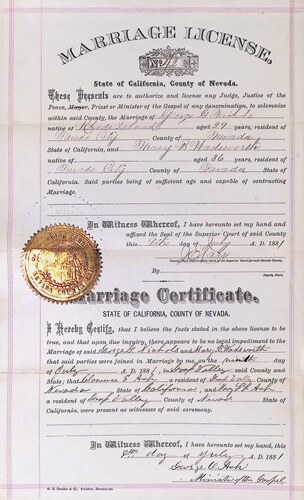 MARRIAGE LICENSE,
No 12
State of California, County of Nevada.
These Presents are to authorize and license any Judge, Justice of the
Peace, Mayor, Priest or Minister of the Gospel of any denomination, to solemnize
within said County, the Marriage of George G. Nichols
native of Rhode Island aged 29 years, resident of
City County of Nevada
State of California, and Mary W. Wadsworth
native of aged 36 years, resident of
Nevada City County of Nevada
State of California. Said parties being of sufficient age and capable of contracting
Marriage.
In Witness Whereof, I have hereunto set my hand and
affixed the Seal of the Superior Court of said County
this 9th day of July A. D. 1881
County Clerk and Ex-officio Clerk of the Superior Court for said Nevada County.
By
Deputy Clerk.
Marriage Certificate.
STATE OF CALIFORNIA, COUNTY OF NEVADA.
I Hereby Certify, that I believe the facts stated in the above license to be
true, and that upon due inquiry, there appears to be no legal impediment to the
Marriage of said George G. Nichols and Mary W. Wadsworth
that said parties were joined in Marriage by me, on the ninth day of
July A. D. 1881, in Grass Valley said County and
State; that E. Ash a resident of
Nevada State of California, and F. Ash
a resident of Grass Valley County of Nevada State of
California, were present as witnesses of said ceremony.
In Witness Whereof, I have hereunto set my hand this
day of July A. D. 1881
George O. Ash
Minister of the Gospel